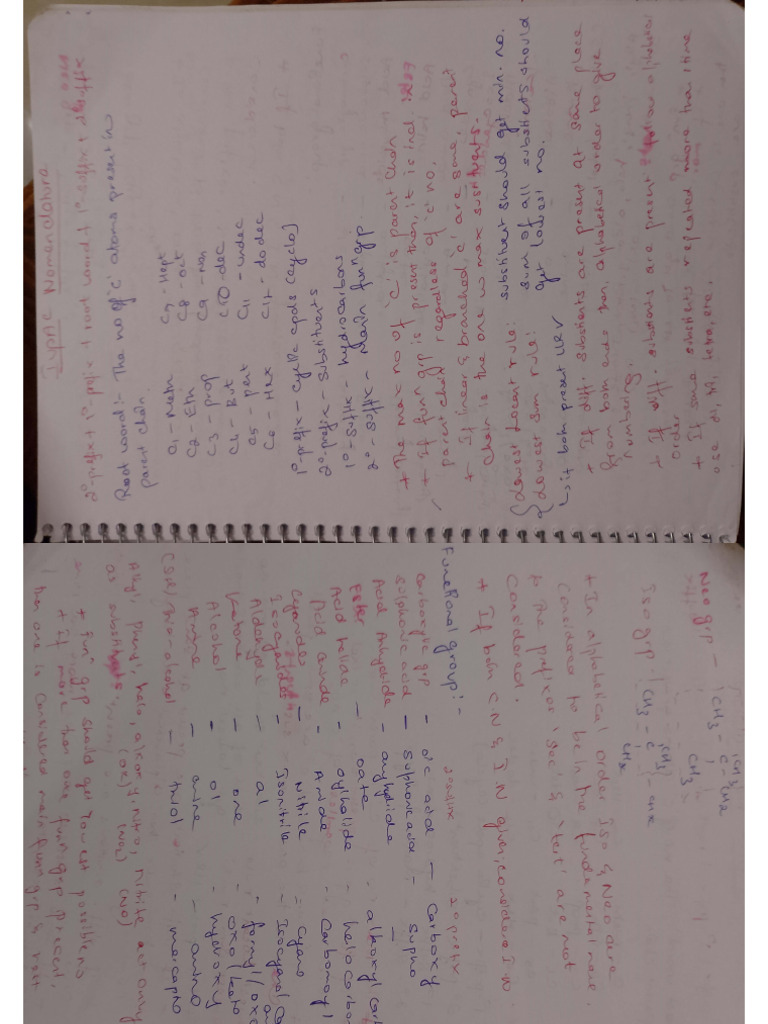 IUPAC Nomenclature
2°-prefix + 1°-prefix + root word + 1°-suffix + 2°-suffix
Root word:- The no of 'C' atoms present in
parent chain.
C1 - Meth C7 - Hept
C2 - Eth C8 - oct
C3 - prop C9 - Non
C4 - But C10 - dec
C5 - pent C11 - undec
C6 - Hex C12 - do dec
1°-prefix - cyclic cpds (cyclo)
2°-prefix - Substituents
1°-suffix - hydrocarbons
2°-suffix - Main fun grp
+ The max no of 'C' is parent chain
+ If fun grp is present then, it is incl. in
parent chain regardless of 'c' no.
+ If linear & branched 'c' are same, parent
chain is the one w max substituents.
{ Lowest Locant rule: substituent should get min. no.
{ Lowest sum rule: sum of all substients should
get lowest no.
↳ if both present LLR
+ If diff. substients are present at same place
from both ends then, alphabetical order to give
numbering.
+ If diff. substients are present alphabetical
order
+ If same substients repeated more than 1 time
use di, tri, tetra, etc.
Neo grp - CH3
CH3 - C - CH2
CH3
Iso grp CH3
CH3 - C - CH2
+ In alphabetical order Iso & Neo are
considered to be in the fundamental name.
+ The prefixes 'sec' & 'tert' are not
considered.
+ If both CN & IN given, consider IN
Functional group:-
suffix 2° prefix
Carboxylic grp - oic acid - Carboxy
Sulphonic acid - sulphonic acid - sulpho
Acid Anhydride - anhydride -
Ester - oate - alkoxy car
Acid halide - oyl halide - halo carbon
Acid amide - Amide - Carbamoyl
Cyanides - Nitrile - Cyano
Isocyanides - Isonitrile - Isocyano
Aldehyde - al - formyl / oxo
Ketone - one - oxo / keto
Alcohol - ol - hydroxy
Amine - amine - amino
(SH) Thio-alcohol - thiol - mercapto
Alkyl, phenyl, halo, alkoxy, nitro, nitrite act only
(OR) (NO2) (NO)
as
+ fun grp should get lowest possible no
+ If more than one fun grp present,
then one is considered main fun grp & rest